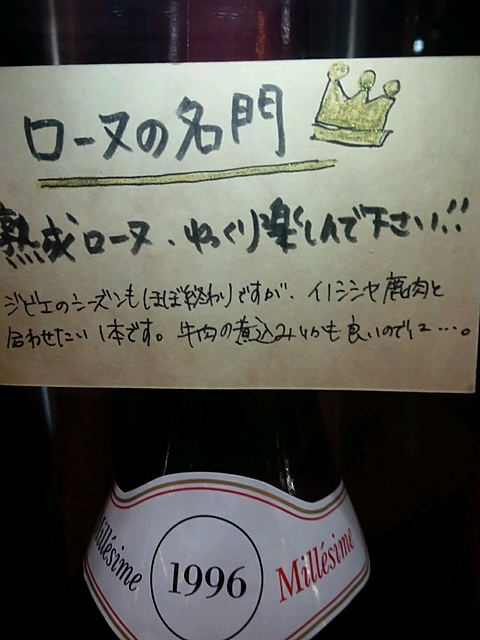 ローヌの名門
熟成ローヌ、ゆっくり楽しんで下さい!!
ジビエのシーズンもほぼ終わりですが、イノシシや鹿肉と
合わせたい1本です。牛肉の煮込みなんかも良いのでは…。
Millésime 1996 Millésime